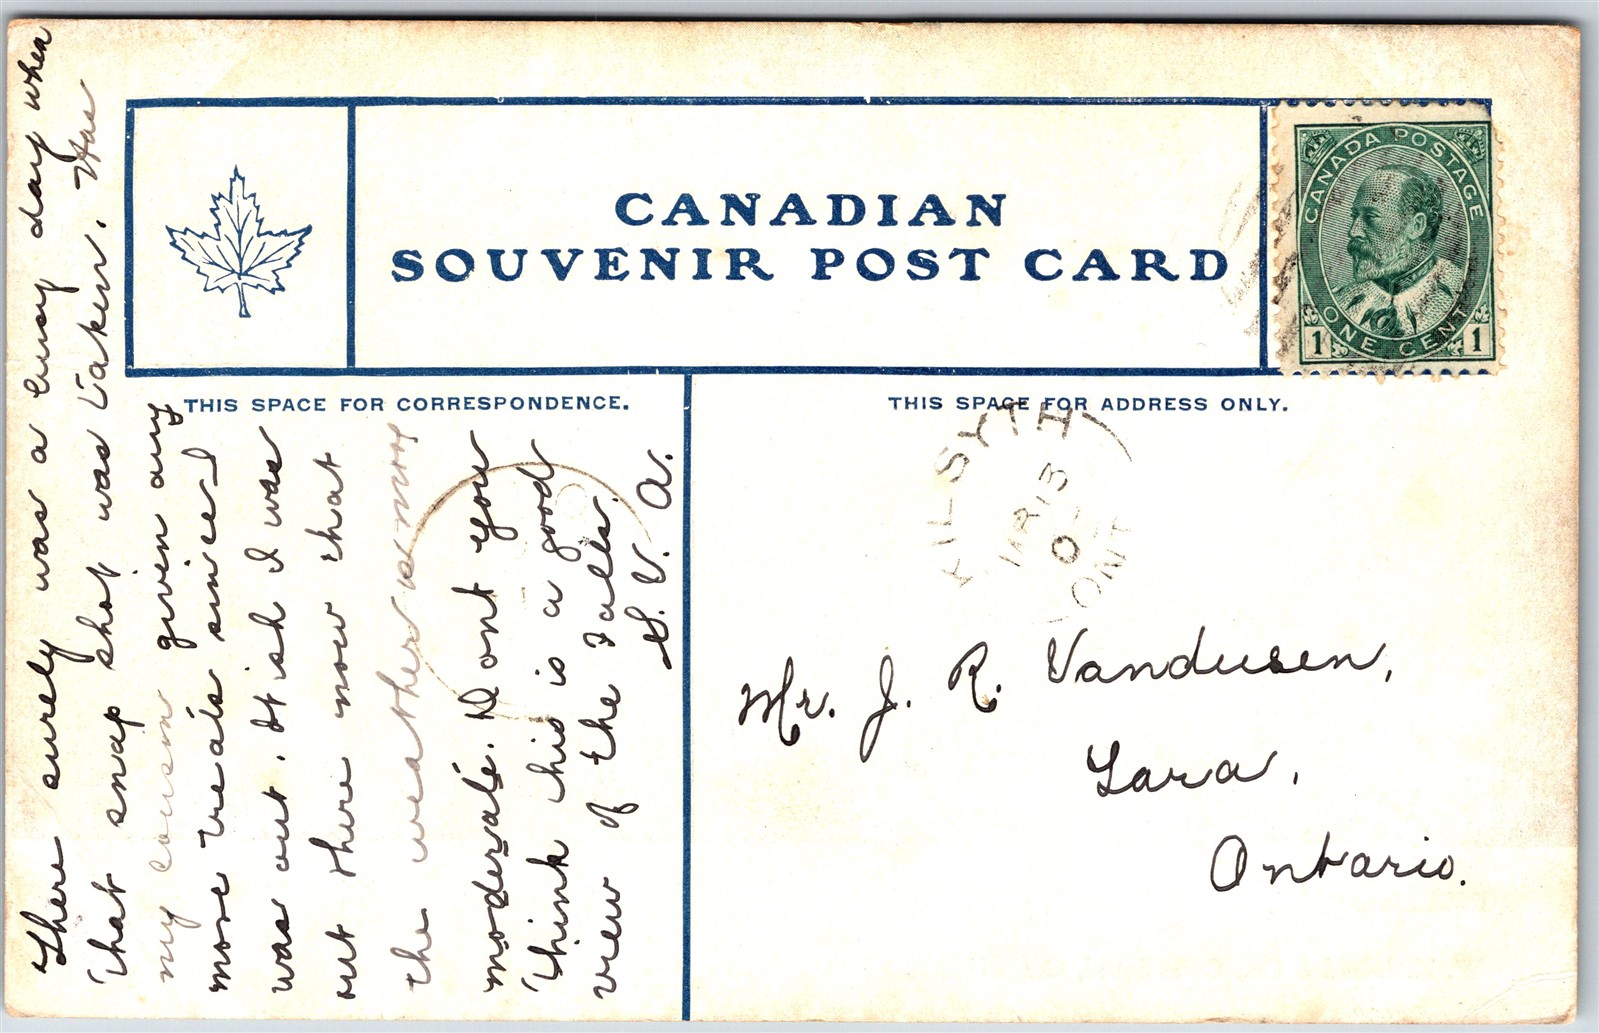 CANADIAN
SOUVENIR POST CARD
CANADA POSTAGE
1 ONE CENT 1
THIS SPACE FOR CORRESPONDENCE.
THIS SPACE FOR ADDRESS ONLY.
There surely was a busy day when
that snap shot was taken. Has
my cousin given any
more treats since I
was out. Wish I was
out there now that
the weather is more
moderate. Dont you
think this is a good
view of the Falls.
S. V. A.
KILSYTH
MR 13
0
ONT
Mr. J. R. Vandusen,
Lara,
Ontario.